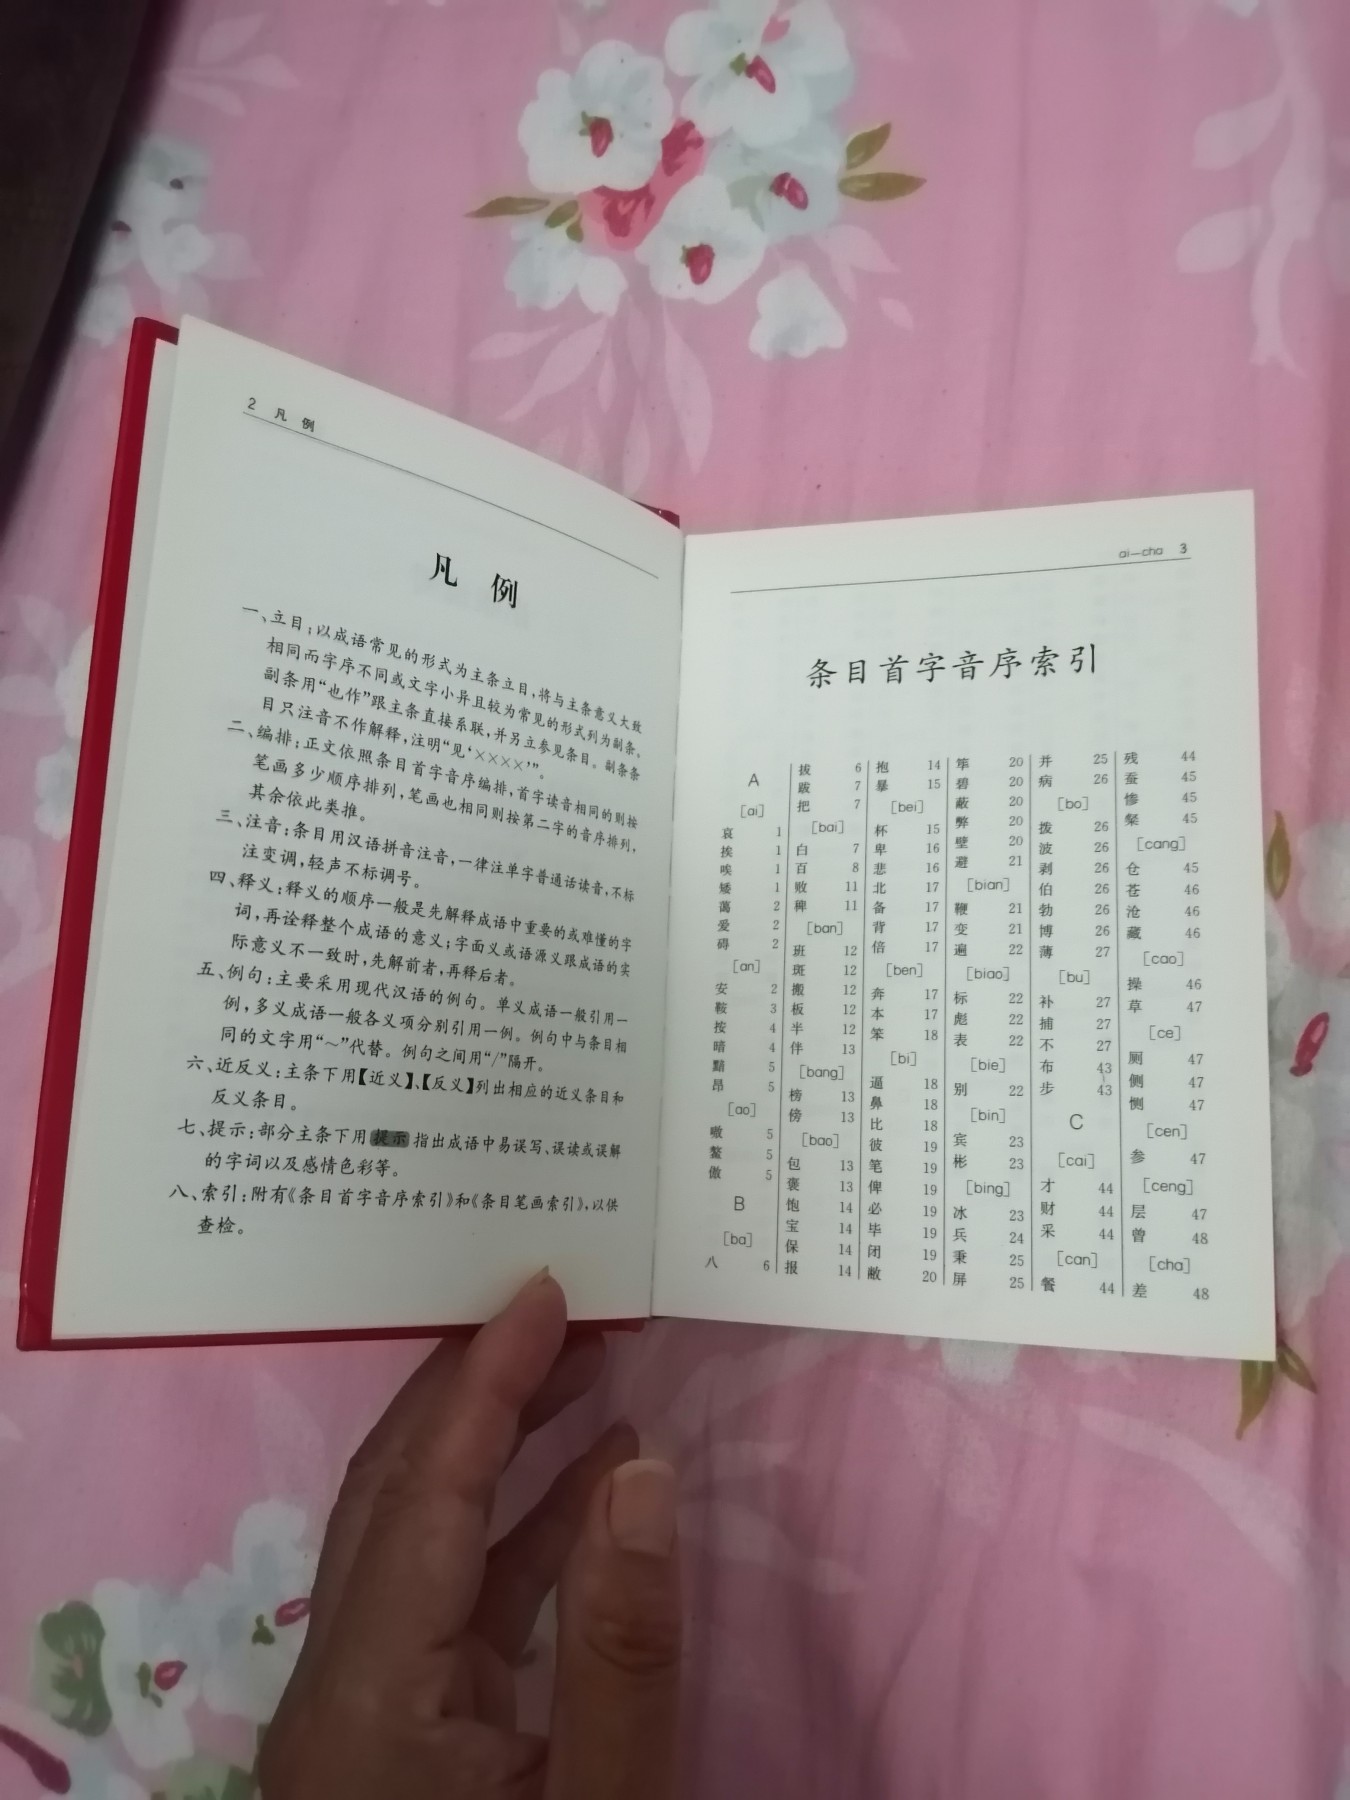 2 凡 例
凡 例
一、立目:以成语常见的形式为主条立目,将与主条意义大致
相同而字序不同或文字小异且较为常见的形式列为副条。
副条用“也作”跟主条直接系联,并另立参见条目。副条条
目只注音不作解释,注明“见‘××××’”。
二、编排:正文依照条目首字音序编排,首字读音相同的则按
笔画多少顺序排列,笔画也相同则按第二字的音序排列,
其余依此类推。
三、注音:条目用汉语拼音注音,一律注单字普通话读音,不标
注变调,轻声不标调号。
四、释义:释义的顺序一般是先解释成语中重要的或难懂的字
词,再诠释整个成语的意义;字面义或语源义跟成语的实
际意义不一致时,先解前者,再释后者。
五、例句:主要采用现代汉语的例句。单义成语一般引用一
例,多义成语一般各义项分别引用一例。例句中与条目相
同的文字用“~”代替。例句之间用“/”隔开。
六、近反义:主条下用【近义】、【反义】列出相应的近义条目和
反义条目。
七、提示:部分主条下用提示指出成语中易误写、误读或误解
的字词以及感情色彩等。
八、索引:附有《条目首字音序索引》和《条目笔画索引》,以供
查检。
ai—cha 3
条目首字音序索引
A
[ai]
哀 1
挨 1
唉 1
矮 1
蔼 2
爱 2
碍 2
[an]
安 2
鞍 3
按 4
暗 4
黯 5
昂 5
[ao]
嗷 5
鳌 5
傲 5
B
[ba]
八 6
拔 6
跋 7
把 7
[bai]
白 7
百 8
败 11
稗 11
[ban]
班 12
斑 12
搬 12
板 12
半 12
伴 13
[bang]
榜 13
傍 13
[bao]
包 13
褒 13
饱 14
宝 14
保 14
报 14
抱 14
暴 15
[bei]
杯 15
卑 16
悲 16
北 17
备 17
背 17
倍 17
[ben]
奔 17
本 17
笨 18
[bi]
逼 18
鼻 18
比 18
彼 19
笔 19
俾 19
必 19
毕 19
闭 19
敝 20
筚 20
碧 20
蔽 20
弊 20
壁 20
避 21
[bian]
鞭 21
变 21
遍 22
[biao]
标 22
彪 22
表 22
[bie]
别 22
[bin]
宾 23
彬 23
[bing]
冰 23
兵 24
秉 25
屏 25
并 25
病 26
[bo]
拨 26
波 26
剥 26
伯 26
勃 26
博 26
薄 27
[bu]
补 27
捕 27
不 27
布 43
步 43
C
[cai]
才 44
财 44
采 44
[can]
餐 44
残 44
蚕 45
惨 45
粲 45
[cang]
仓 45
苍 46
沧 46
藏 46
[cao]
操 46
草 47
[ce]
厕 47
侧 47
恻 47
[cen]
参 47
[ceng]
层 47
曾 48
[cha]
差 48